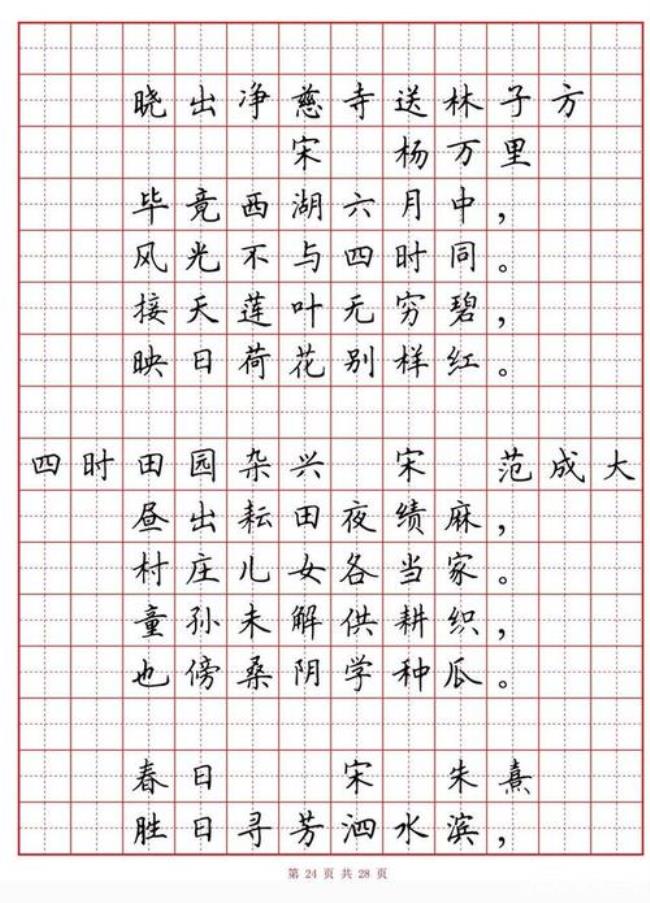 晓出净慈寺送林子方
宋 杨万里
毕竟西湖六月中，
风光不与四时同。
接天莲叶无穷碧，
映日荷花别样红。
四时田园杂兴 宋 范成大
昼出耘田夜绩麻，
村庄儿女各当家。
童孙未解供耕织，
也傍桑阴学种瓜。
春日 宋 朱熹
胜日寻芳泗水滨，
第 24 页 共 28 页